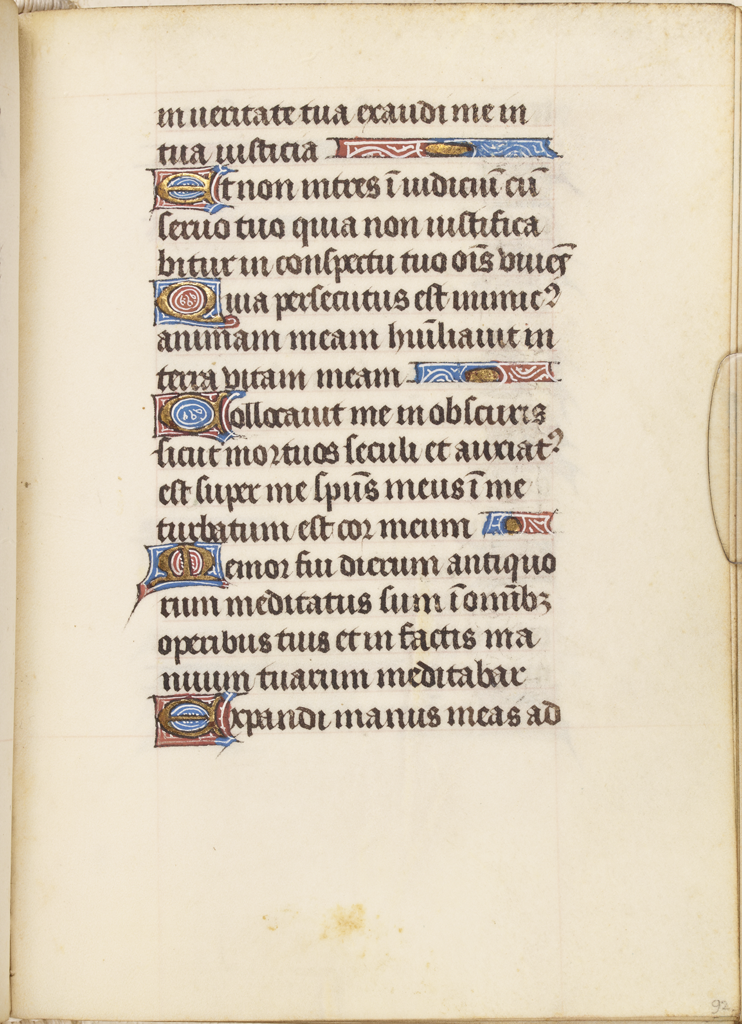 in ueritate tua exaudi me in
tua iusticia
Et non intres ī iudiciū cū
seruo tuo quia non iustifica
bitur in conspectu tuo oīs viuēs
Quia persecutus est inimicꝰ
animam meam hūiliauit in
terra vitam meam
Collocauit me in obscuris
sicut mortuos seculi et anxiatꝰ
est super me spūs meus ī me
turbatum est cor meum
Memor fui dierum antiquo
rum meditatus sum ī omībꝫ
operibus tuis et in factis ma
nuum tuarum meditabar
Expandi manus meas ad
92